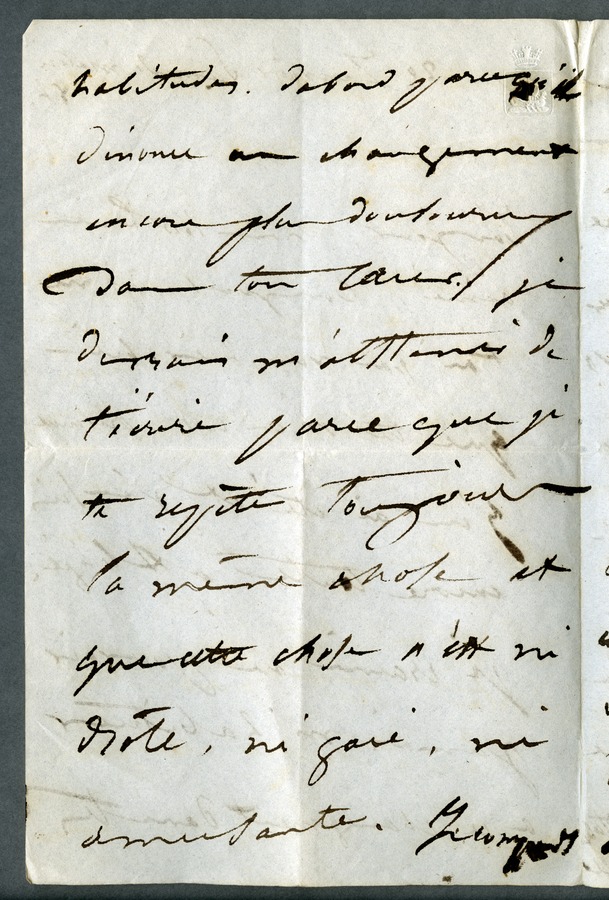 habitudes. dabord parcequ'il
dénonce un changement
encore plus douloureux
Dans ton cœur. je
devrais m'abstenir de
t'écrire parce que je
te repète toujours
la même chose et
que cette chose n'est ni
drôle, ni gaie, ni
amusante.